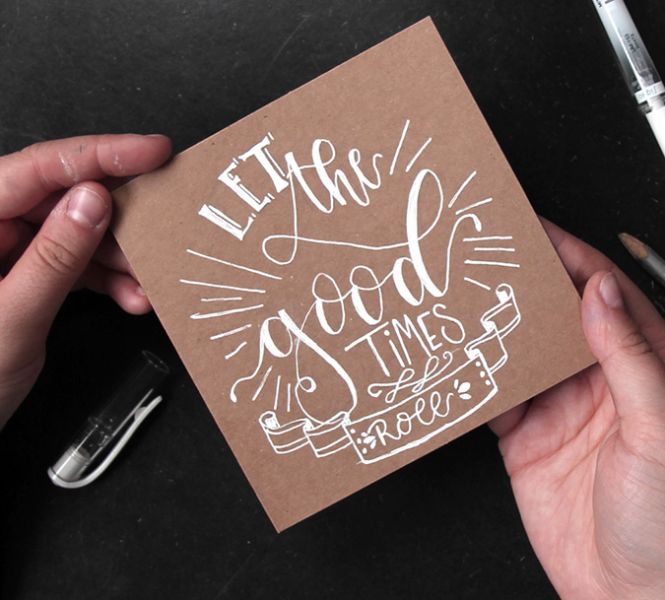 LET the
good
TiMES
Roll